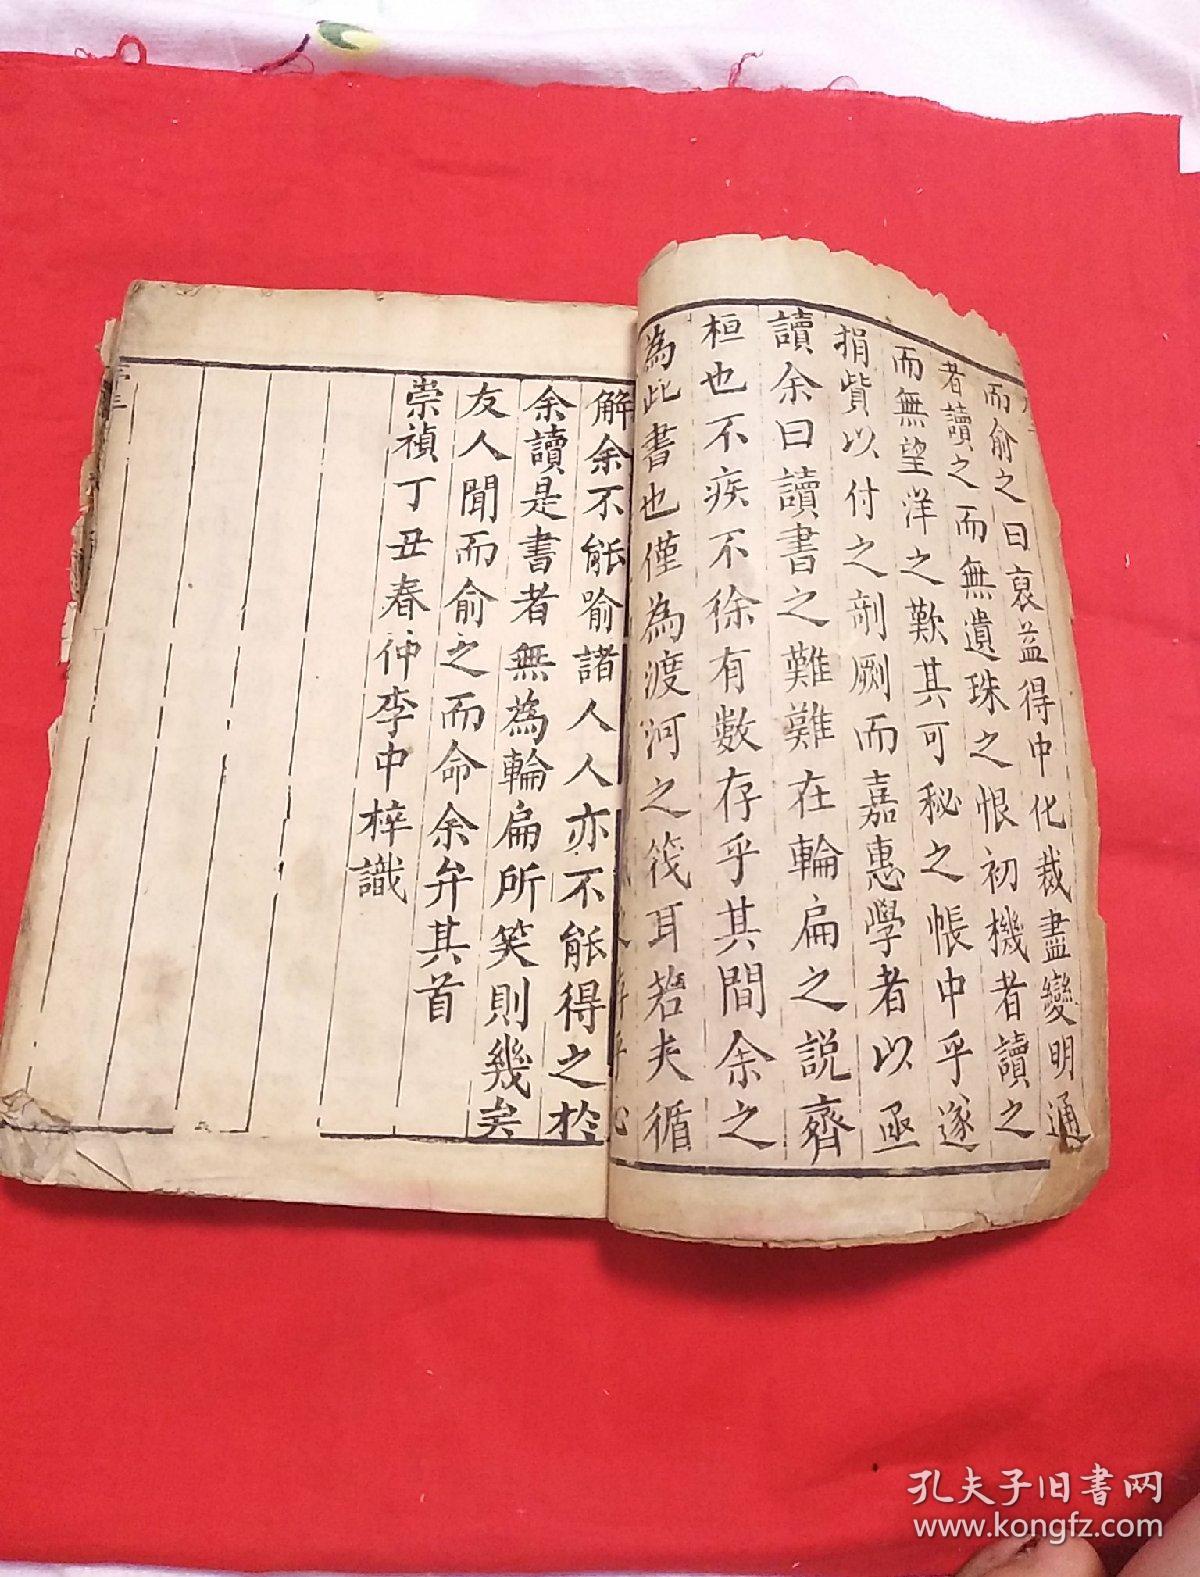 而俞之曰裒益得中化裁盡變明通
者讀之而無遺珠之恨初機者讀之
而無望洋之歎其可秘之帳中乎遂
捐貲以付之剞劂而嘉惠學者以亟
讀余曰讀書之難難在輪扁之説齊
桓也不疾不徐有數存乎其間余之
為此書也僅為渡河之筏耳若夫循
解余不能喻諸人人亦不能得之於
余讀是書者無為輪扁所笑則幾矣
友人聞而俞之而命余弁其首
崇禎丁丑春仲李中梓識
孔夫子旧书网
www.kongfz.com